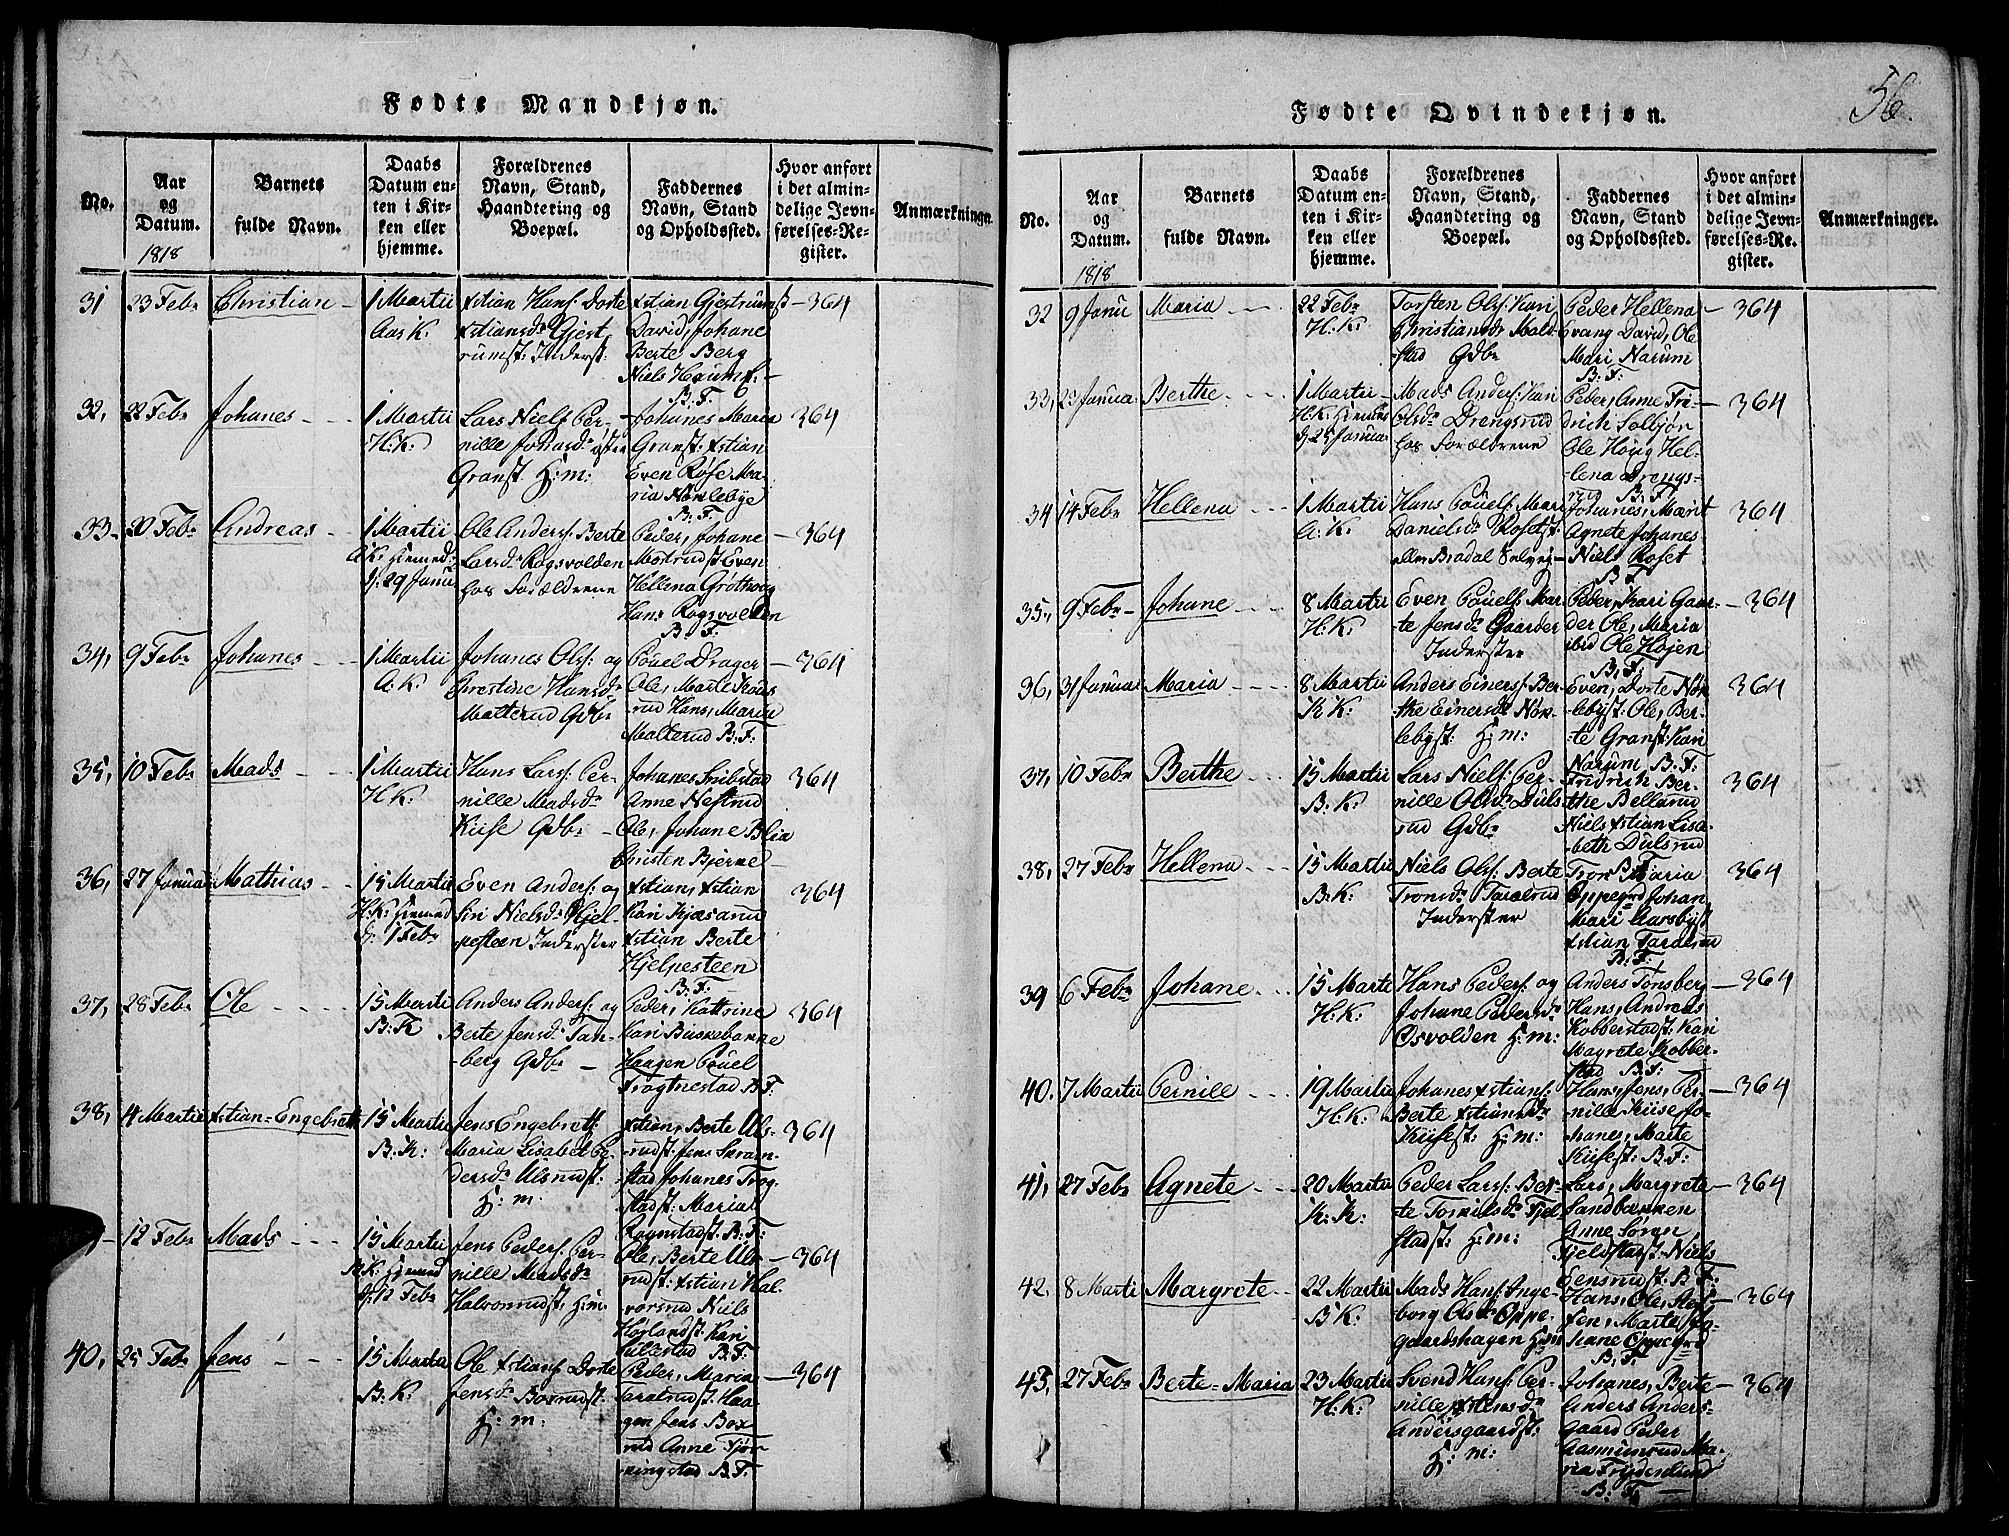 Fødte Mandkjøn.
No.
Aar
og
Datum.
1818
Barnets
fulde Navn.
Daabs
Datum en-
ten i Kir-
ken eller
hjemme.
Forældrenes
Navn, Stand,
Haandtering og
Boepæl.
Faddernes
Navn, Stand
og Opholdssted.
Hvor anført
i det almin-
delige Jevn-
førelses-Re-
gister.
Anmærkninger
31
23 Febr
Christian
1 Martii
Aas K:
xstian Hans: Dorte
xstiansdr Gjest
rumst: Inderst:
xstian Gjestrumst
David, Johane
Berte Berg
Niels
B: F.
364
32,
22 Febr
Johanes
1 Martii
H: K:
Lars Niels Per-
nille Johansdr
Granst H: m:
Johanes Maria
Granst: xstian
Even Røse Ma-
ria Nørlebye
B: F.
364
33
20 Febr
Andreas
1 Martii
A: K: hiemed:
d: 29 Janu
Ole Anders: Berte
Larsdr Rogsvolden
hos Forældrene
Peder, Johane
Even
Hellena Grøthoug
Hans Rogsvolden
B: F:
364
34,
9 Febr
Johanes
1 Martii
A: K:
Johanes Ols: og
Chrestine Hansdr
Malterud Gdbr
Pouel Drager
Ole, Marte
rud Hans, Maria
Malterud B: F:
364
35,
10 Febr
Mads
1 Martii
H: K:
Hans Lars: Per-
nille Madsdr
Kiise Gdbr
Johanes
Anne Nestrud
Ole, Johane Blia
Christen Bjerne
364
36,
27 Janua
Mathias
15 Martii
H: K: hiemed
d: 1 Febr
Even Anders: og
Siri Nielsdr Hjel-
pesteen Inderster
xstian, xstian
Kari Kjæsarud
xstian Berte
Hjelpesteen
B: F:
364
37,
28 Febr
Ole
15 Martii
B: K
Anders Anders: og
Berte Jensdr Tan-
berg Gdbr
Peder, Kattrine
Kari Buskebanne
Haagen Pouel
Trøgtnestad B: F:
364
38,
4 Martii
xstian-Engebrett
15 Martii
B: K:
Jens Engebrett:
Maria Lisabet Pe-
dersdr Ulsrudst:
H: m.
xstian, Berte Uls-
rudst: Jens Skram-
stad Johanes Trøg-
stadst: Maria
Rognstadst: B: F:
364
12 Febr
Mads
15 Martii
B: K: hjemed
d: 12 Febr
Jens Peders: Per-
nille Madsdr
Halvorsrudst: H: m.
Ole, Berte Uls-
rudst: xstian Hal-
vorsrud Niels
Hørlandst: Kari
Lillestad B: F:
364
40,
25 Febr
Jens
15 Martii
B: K:
Ole xstians: Dorte
Jensdr Boxrudst:
H: m:
Peder, Maria
Haa-
gen Jens Box-
rud Anne Tjør-
ningstad B: F:
364
Fødte Qvindekjøn.
56.
No.
Aar
og
Datum.
1818
Barnets
fulde Navn.
Daabs
Datum en-
ten i Kir-
ken eller
hjemme.
Forældrenes
Navn, Stand,
Haandtering og
Boepæl.
Faddernes
Navn, Stand
og Opholdssted.
Hvor anført
i det almin-
delige Jevn-
førelses-Re-
gister.
Anmærkninger.
32
9 Janu
Maria
22 Febr
H: K:
Torsten Ols: Kari
Christiansdr Mald-
stad Gdbr
Peder Hellena
Evang David, Ole
Mari Narum
B: F:
364
33,
23 Janua
Berthe
1 Martii
H: K: hjemed
d: 25 Janua
Mads Anders: Kari
Olsdr Drengsrud
hos Forældrene
Peder, Anne Fri-
drich Solbjør
Ole Houg Hel-
lena Drengs-
rud B: F:
364
34
14 Febr
Hellena
1 Martii
A: K:
Hans Pouels: Mari
Danielsdr Rosetst:
eller Bradal Selvei-
Johanes, Marit
Agnete Johanes
Niels Roset
B: F
364
35,
9 Febr
Johane
8 Martii
H: K:
Even Pouels: Mar-
te Jensdr Gaarder
Inderster
Peder, Kari Gaar-
der Ole, Maria
ibid Ole Hojen
B: F:
364
36,
31 Januai
Maria
8 Martii
K K:
Anders Einers: Ber-
the Einersdr Nør-
lebyst: H: m:
Even, Dorte Nør
lebyst: Ole, Ber-
te Granst: Kari
Narum B: F:
364
37,
10 Febr
Berthe
15 Martii
B: K:
Lars Niels: Per-
nille Olsdr Duls
rud Gdbr
Fridrich Ber-
the Bellerud
Niels xstian Lisa-
beth Dulsrud
364
38,
27 Febr
Hellena
15 Martii
B: K:
Niels Ols: Berte
Tronsdr Taralrud
Inderster
Tron Maria
Oppegrd Johan
Mari Aarsbyst
xstian Taralrud
B: F:
364
39
6 Febr
Johane
15 Martii
H: K:
Hans Peders: og
Johane Pedersdr
Osvolden H: m:
Anders Tonsberg
Hans, Andreas
Kobberstadst: Kari
Magrete Kobber-
stad B: F:
364
40.
7 Martii
Pernille
19 Martii
H: K:
Johanes xstians:
Berte xstiansdr
Kiisest: H: m:
Hans, Jens, Per-
nille Kiise Jo-
hanes, Marte
Kiisest: B: F:
364
41,
27 Febr
Agnete
20 Martii
K: K:
Peder Lars: Ber-
te Torkilsdr Fjel
stadst: H: m:
Lars, Margrete
Sandbækken
Anne Søren
Fjeldstadst: Niels
Eensrudst: B: F:
364
42,
8 Martii
Margrete
22 Martii
B: K:
Mads Hans: Inge-
borg Olsdr Oppe-
gaardshagen H: m
Hans, Ole, Stef-
fen, Marte Jo-
hane Oppegrd
B: F:
364
43,
27 Febr
Berte=Maria
23 Martii
H: K:
Svend Hans: Per-
nille xstensdr
Andersgaardst:
H: m:
Johanes, Berte
Anders Anders-
gaard Peder
Aasmunrud Ma-
ria Frydenlund
B: F:
364